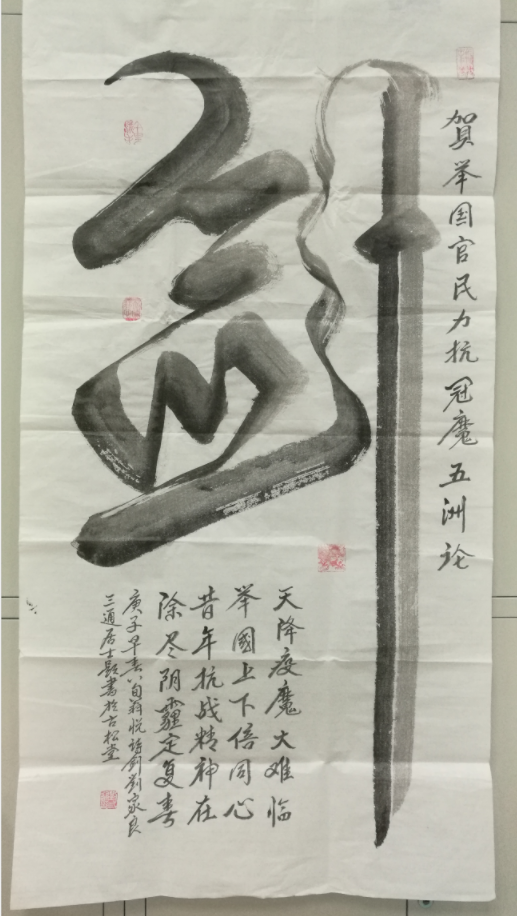 贺举国官民力抗冠魔五洲论
剑
天降疫魔大难临
举國上下倍同心
昔年抗战精神在
除尽阴霾定复春
庚子早春八旬翁悦诗剑刘家良
三通居士影书於古松堂